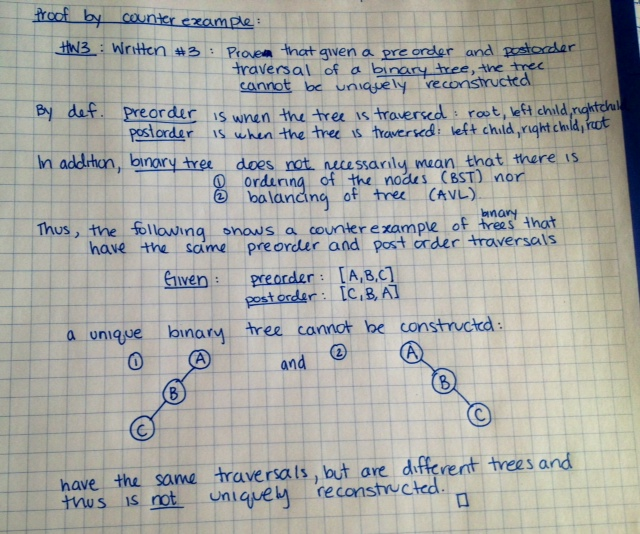 Proof by counter example:
HW3: Written #3: Prove that given a preorder and postorder
traversal of a binary tree, the tree
cannot be uniquely reconstructed
By def. preorder is when the tree is traversed: root, left child, right child
postorder is when the tree is traversed: left child, right child, root
In addition, binary tree does not necessarily mean that there is
① ordering of the nodes (BST) nor
② balancing of tree (AVL)
Thus, the following shows a counterexample of binary trees that
have the same preorder and post order traversals
Given: preorder: [A,B,C]
postorder: [C,B,A]
a unique binary tree cannot be constructed:
① A and ② A
B B
C C
have the same traversals, but are different trees and
thus is not uniquely reconstructed. □